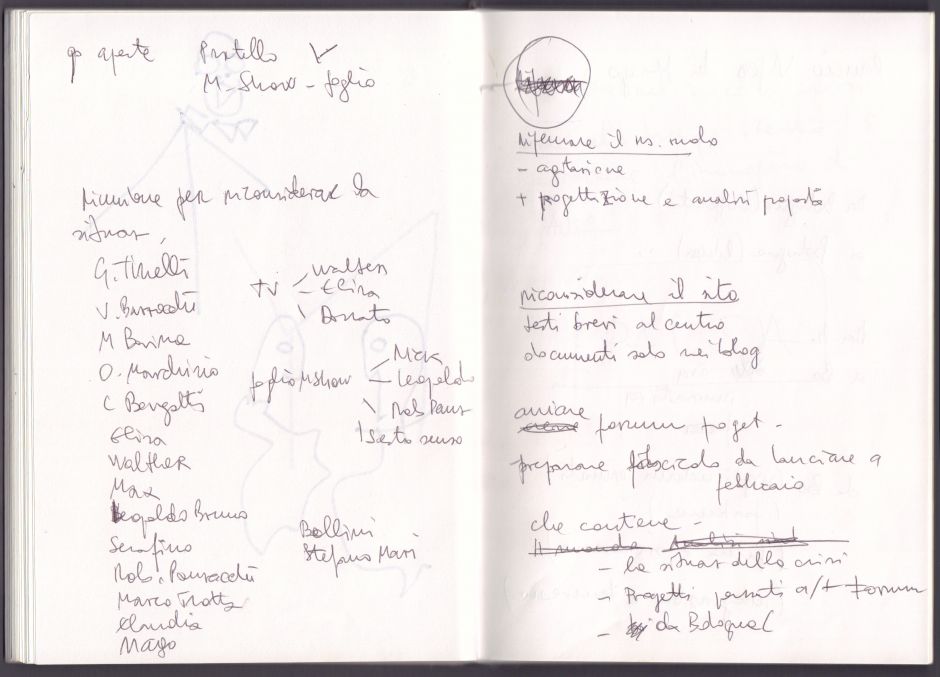 aperte Pratello
M-Show - foglio
riunione per riconsiderare la
situaz,
G. Tinelli
V.
M Bovina
O. Marchisio
C Bergatti
Elisa
Walther
Max
Leopoldo Bruno
Serafino
Rob.
Marco Trotta
Claudia
Mayo
TV
Walther
Elisa
Donato
foglio Mshow
Mick
Leopoldo
Rob
Sesto senso
Bellini
Stefano
il ns. ruolo
- agitazione
+ progettazione e analisi proposta
riconsiderare il sito
testi brevi al centro
documenti solo nei blog
forum proget -
preparare fascicolo da lanciare a
febbraio
che contiene -
- la situaz della crisi
- Progetti a/+ Forum
- da